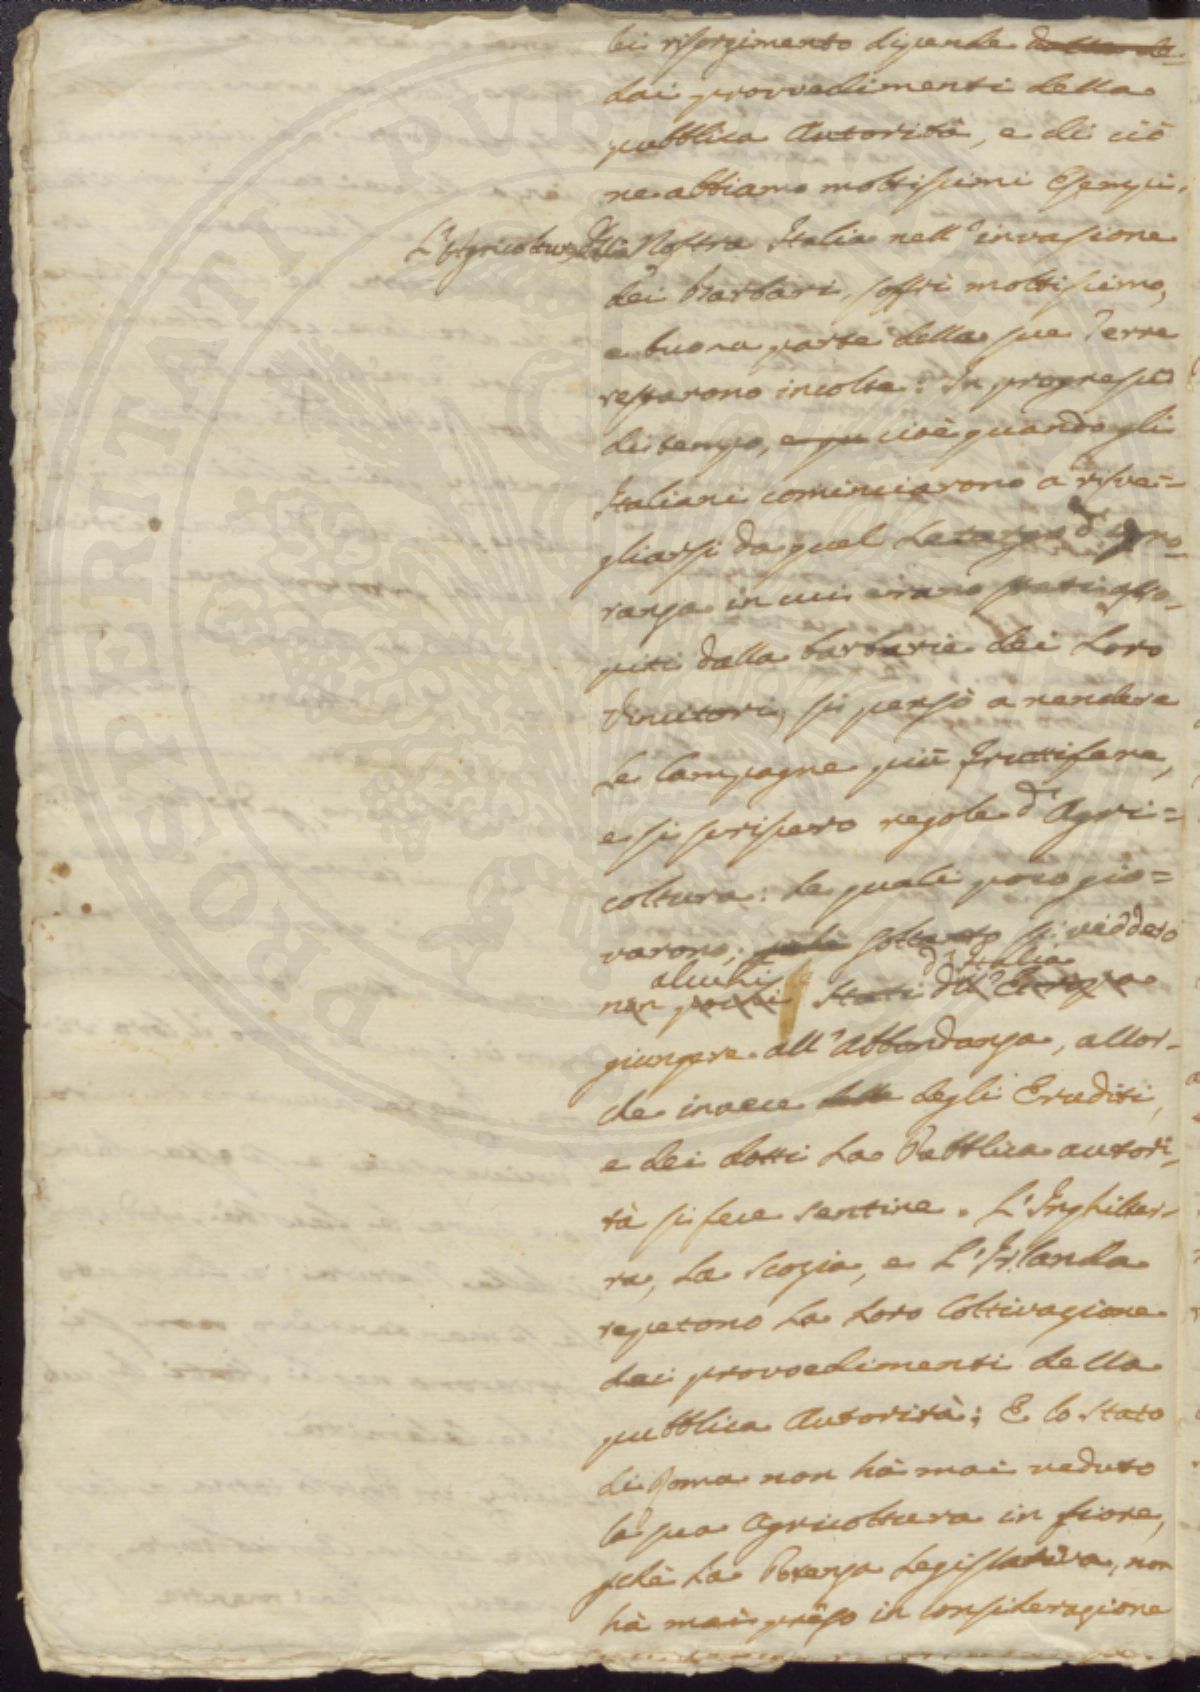 lei risorgimento dipende dalla de=
dai provvedimenti della
pubblica Autorità, e di ciò
ne abbiamo moltissimi Esempi.
L'Agricoltura della Nostra Italia nell'invasione
dei Barbari, soffrì moltissimo,
e buona parte della sue Terre
restarono incolte: In progresso
di tempo, e più cioè quando gli
Italiani cominciarono a risve=
gliarsi da quel Letargo d'igno=
ranza in cui erano stati asso=
piti dalla barbarie dei Loro
Vincitori, si pensò a rendere
Le Campagne più fruttifere,
e si scrissero regole d'Agri=
coltura: Le quali poco gio=
varono; soltanto si viddero
alcuni d'Italia
non pochi Stati dell'Europa
giungere all'abbondanza, allor=
che invece delle degli Eruditi,
e dei dotti La Pubblica autori=
tà si fece sentire. L'Inghilter=
ra, La Scozia, e L'Irlanda
repetono La Loro Coltivazione
dai provvedimenti della
pubblica Autorità; E lo Stato
di Roma non hà mai veduto
la sua Agricoltura in fiore,
pchè La Potenza Legislativa, non
hà mai préso in Considerazione
PROSPERITATI PUBLICAE